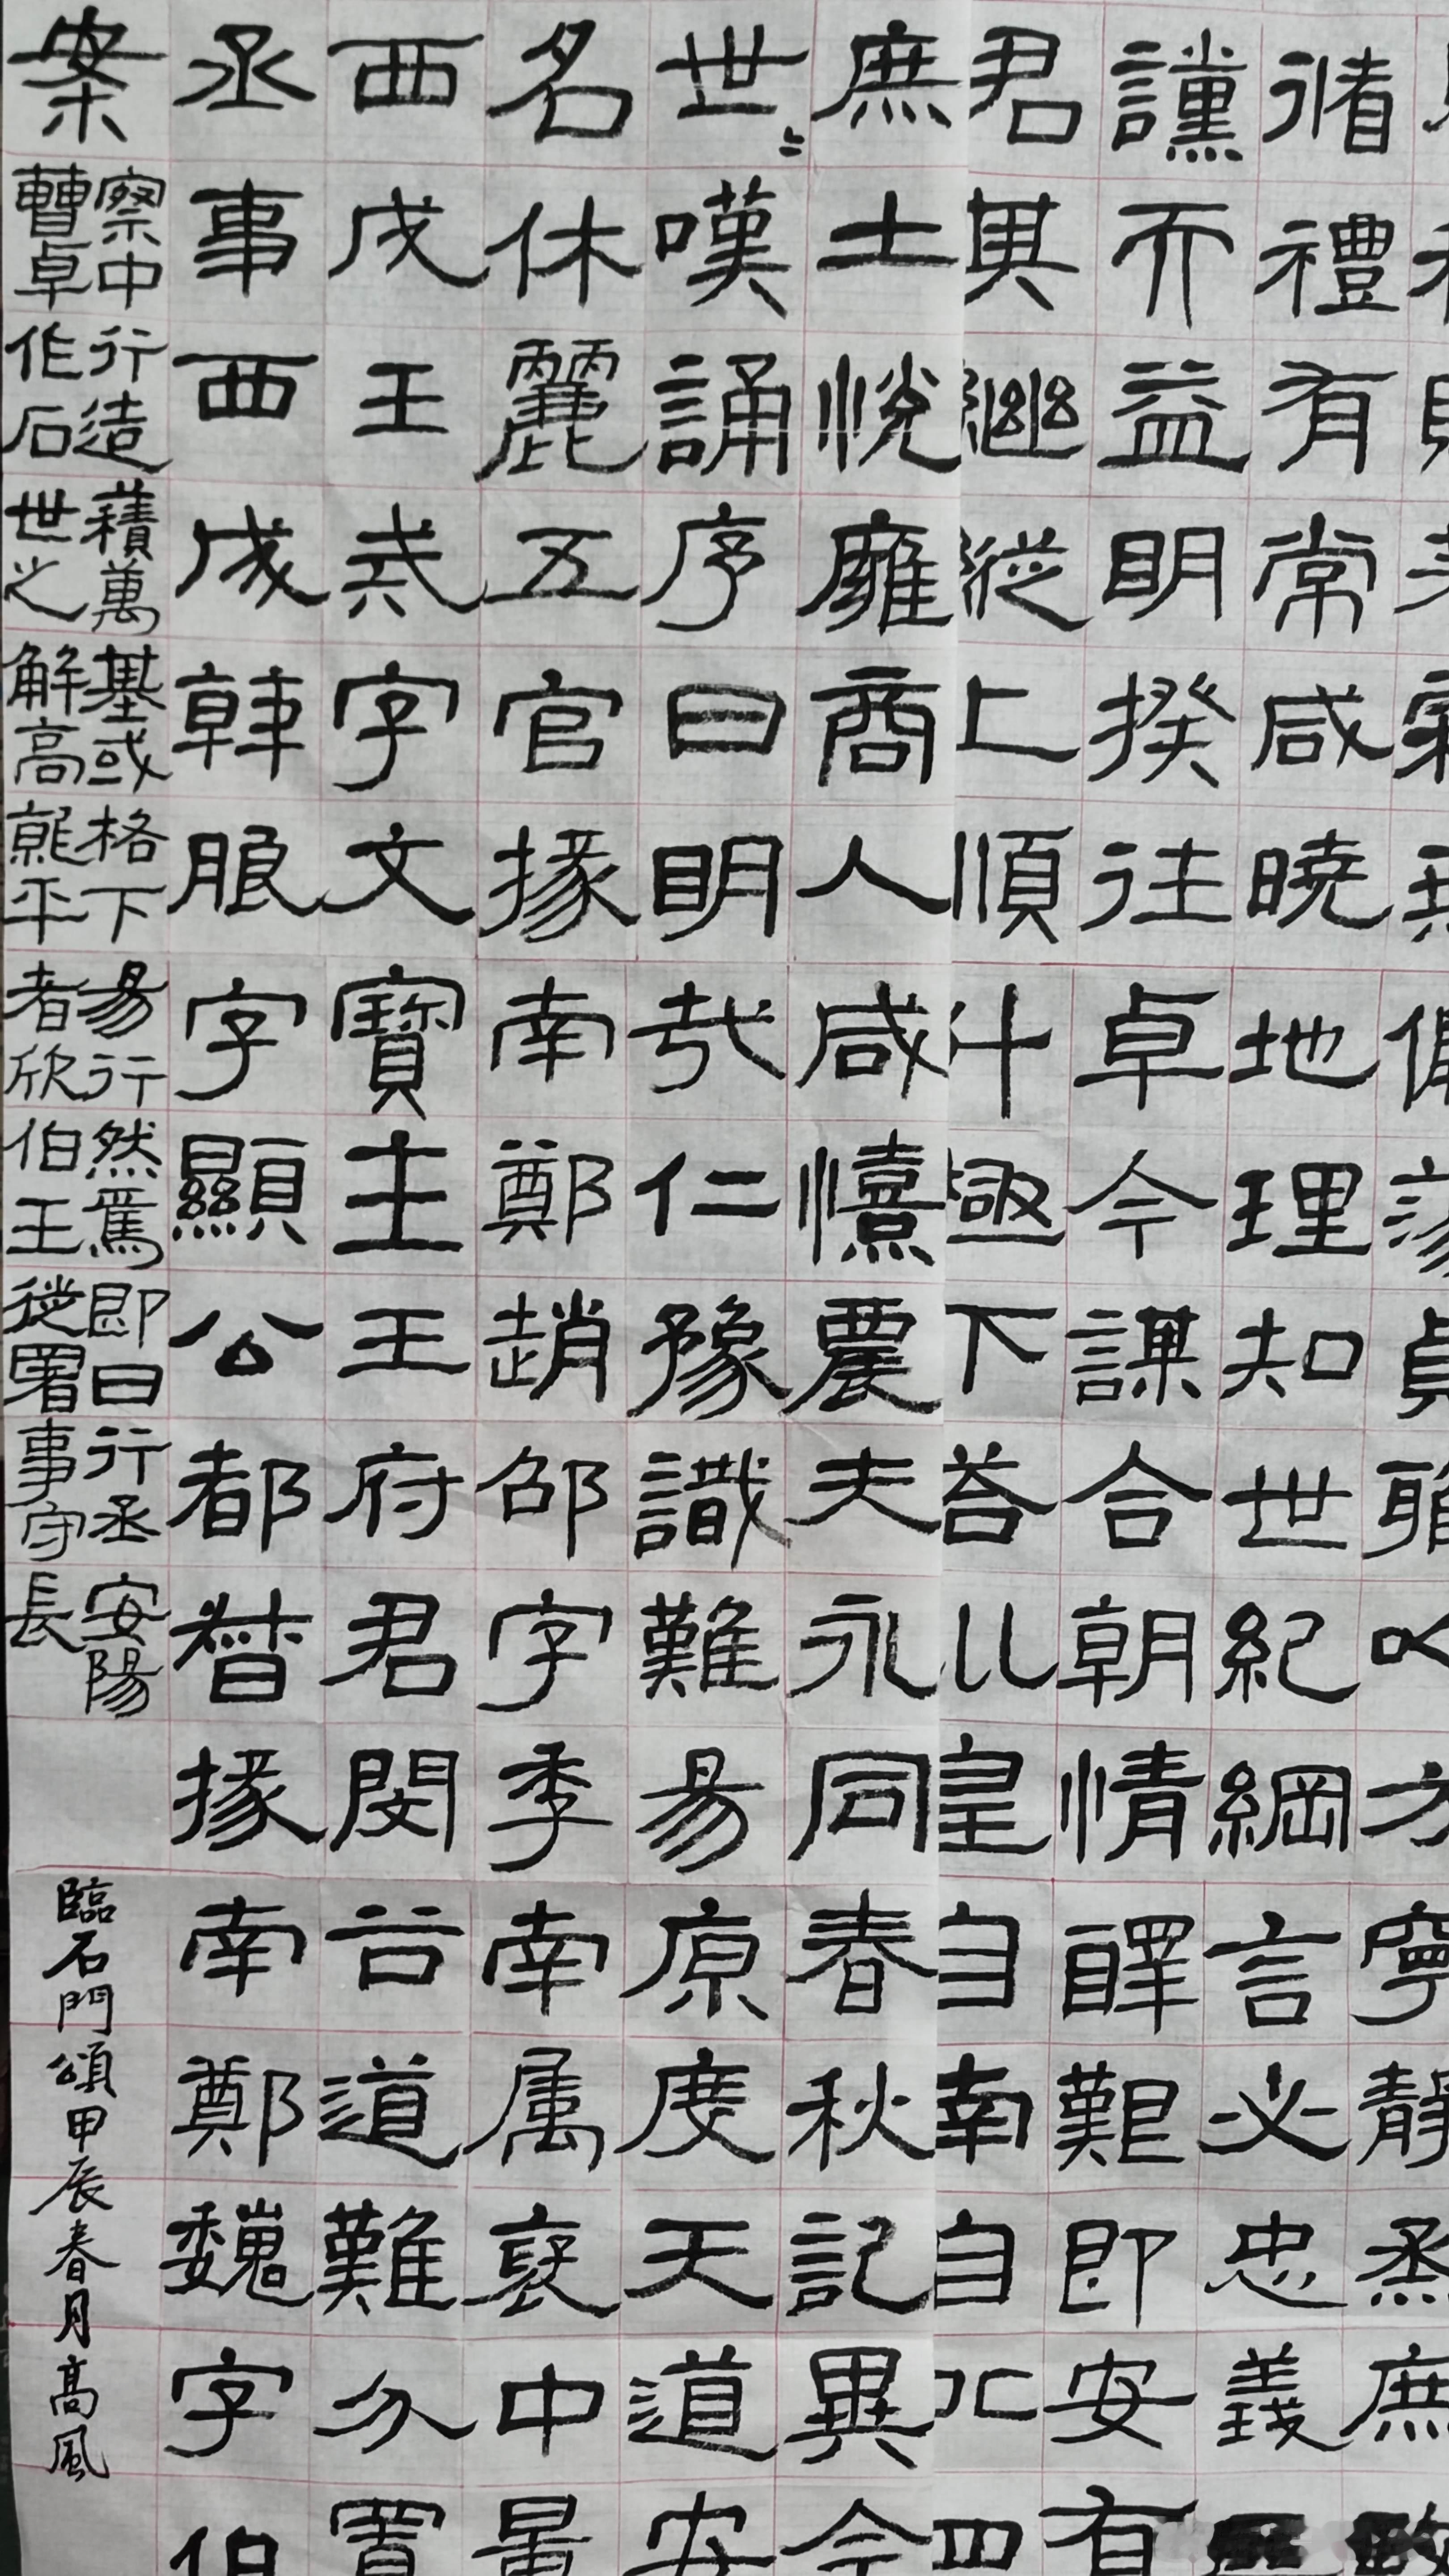 偏蕩貞雅㕥方寧靜烝庶
脩禮有常咸曉地理知世紀綱言必忠義
讜而益明揆往卓今謀合朝情醳艱即安有
君其繼縱上順斗極下荅巛皇自南自北四
庶士悅雍商人咸憘農夫永同春秋記異今
世〻嘆誦序曰明哉仁豫識難易原度天道安
名休麗五官掾南鄭趙邵字季南属褒中晁
西成王戒字文寶主王府君閔谷道難分置
丞事西成韓朖字顯公都督掾南鄭魏字伯
案察中曹卓行造作石積萬世之基或解高格下就平易行者欣然焉伯王即日徙署行丞事守安陽長
臨石門頌甲辰春月高風